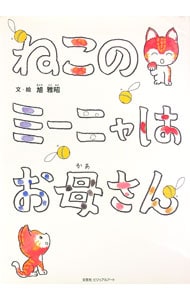 ねこの
文・絵 旭 雅昭
ミーニャは
かあ
お母さん
文芸社 ビジュアルアート